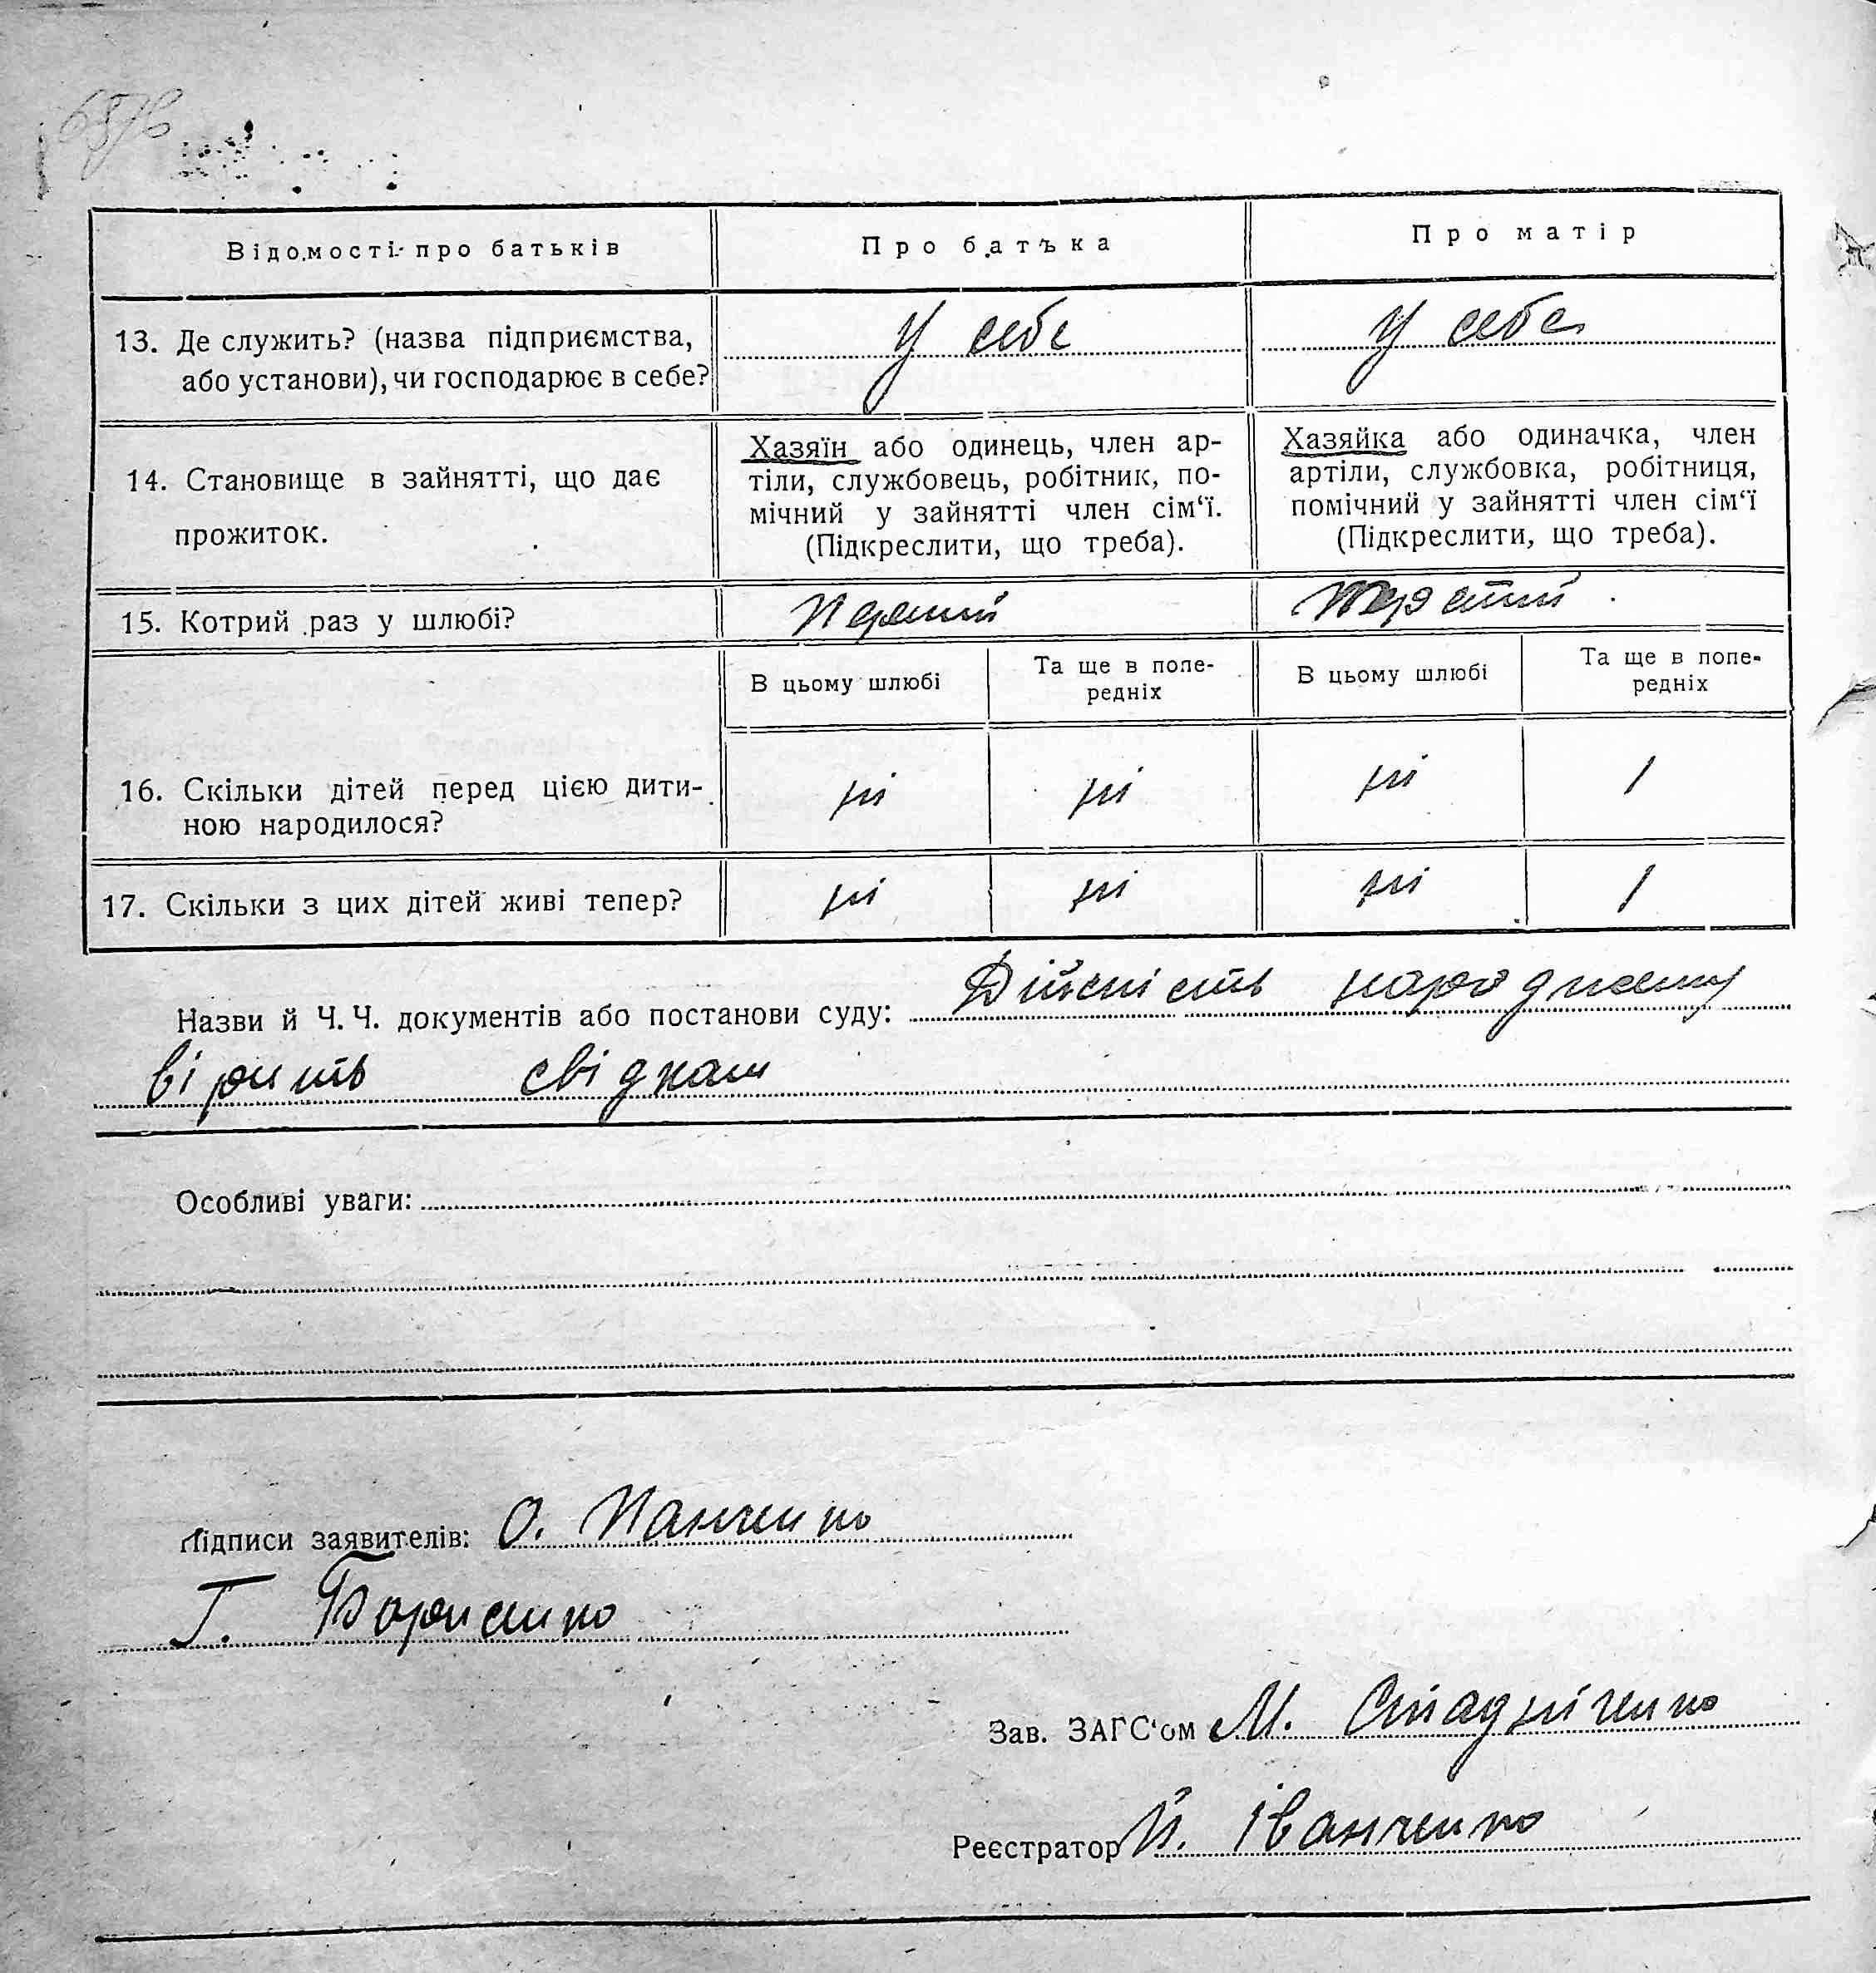 Відомості про батьків
Про батька
Про матір
13. Де служить? (назва підприємства,
або установи), чи господарює в себе?
У себе
У себе
14. Становище в зайнятті, що дає
прожиток.
Хазяїн або одинець, член ар-
тіли, службовець, робітник, по-
мічний у зайнятті член сім‘ї.
(Підкреслити, що треба).
Хазяйка або одиначка, член
артіли, службовка, робітниця,
помічний у зайнятті член сім‘ї
(Підкреслити, що треба).
15. Котрий раз у шлюбі?
Перший
В цьому шлюбі
Та ще в попе-
редніх
В цьому шлюбі
Та ще в попе-
редніх
16. Скільки дітей перед цією дити-
ною народилося?
ні
ні
ні
1
17. Скільки з цих дітей живі тепер?
ні
ні
ні
1
Назви й Ч. Ч. документів або постанови суду: Дійсність народженн
вірить свідкам
Особливі уваги:
Підписи заявителів: О. Панченко
Г. Борисенко
Зав. ЗАГС‘ом М. Стадніченко
Реєстратор Й. Іванченко